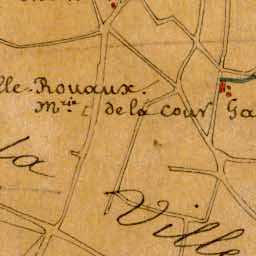 lle-Rouaux.
Mrie de la Cour Ga
la
Ville